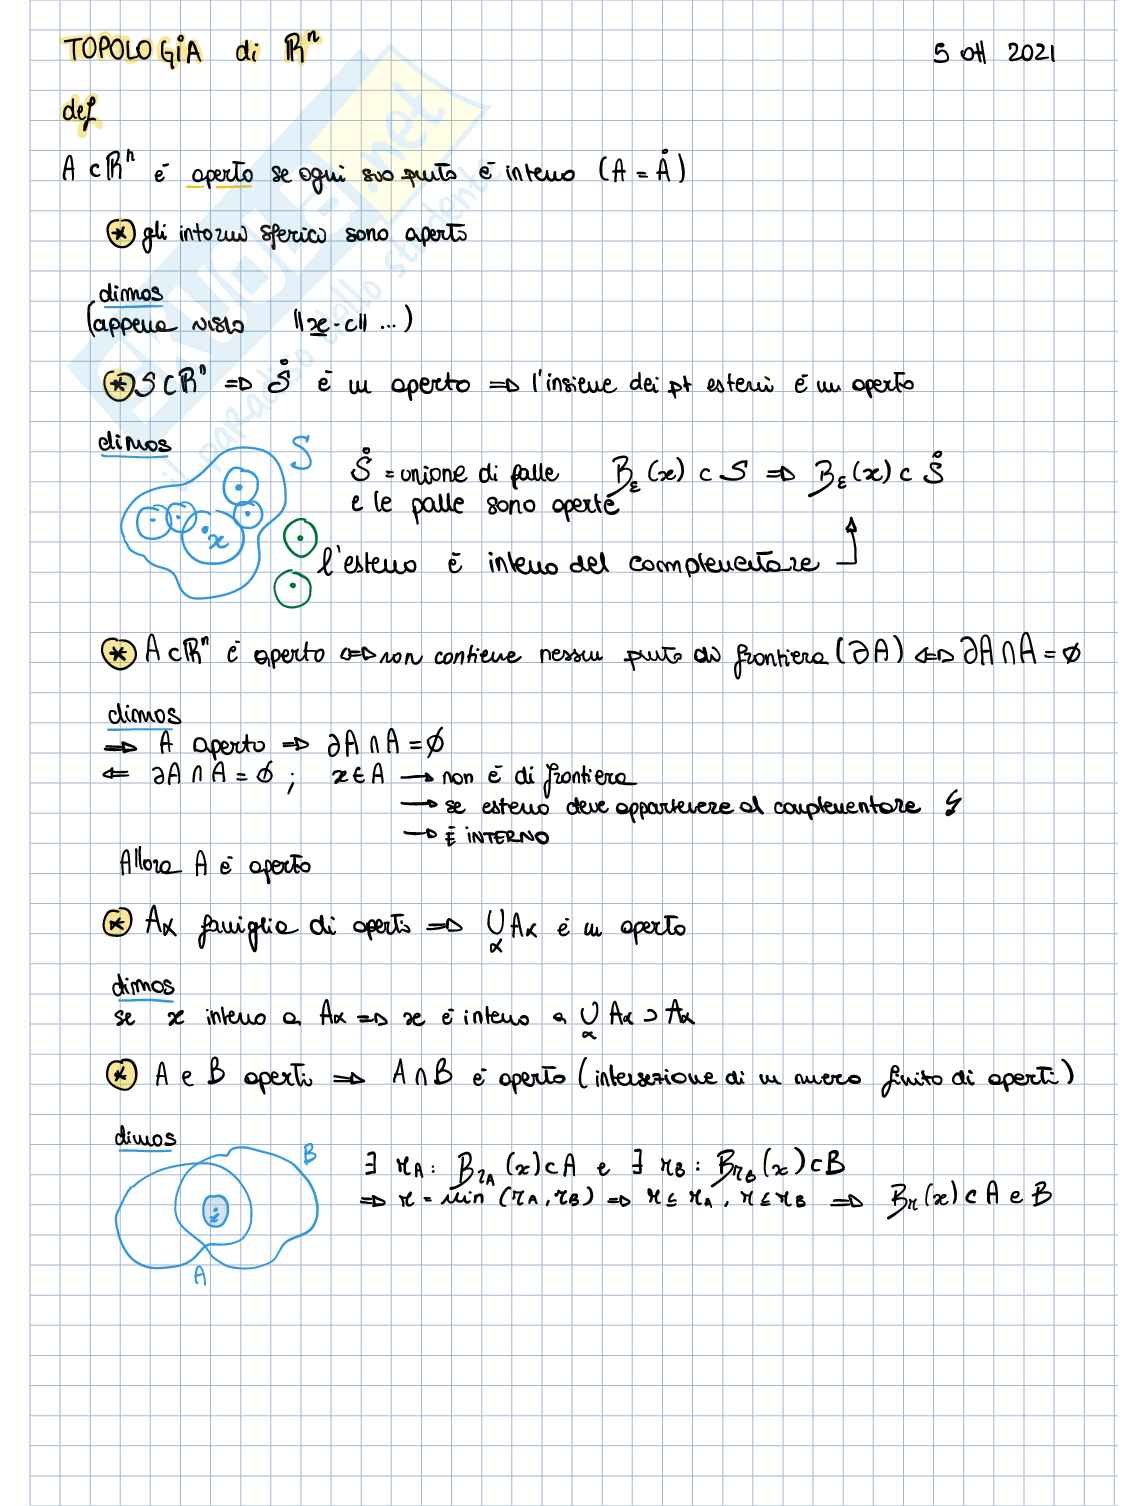 TOPOLOGIA di ℝⁿ 5 ott 2021
def
A ⊂ ℝⁿ è aperto se ogni suo punto è interno (A = Å)
* gli intorni sferici sono aperti
dimos
(appena visto ||x-c|| ...)
* S ⊂ ℝⁿ ⇒ S̊ è un aperto ⇒ l'insieme dei pt esterni è un aperto
dimos
S
S̊ = unione di palle B_ε(x) ⊂ S ⇒ B_ε(x) ⊂ S̊
e le palle sono aperte
x
l'esterno è interno del complementare
* A ⊂ ℝⁿ è aperto ⇔ non contiene nessun punto di frontiera (∂A) ⇔ ∂A ∩ A = ∅
dimos
⇒ A aperto ⇒ ∂A ∩ A = ∅
⇐ ∂A ∩ A = ∅ ; x ∈ A → non è di frontiera
→ se esterno deve appartenere al complementare ↯
→ È INTERNO
Allora A è aperto
* Aα famiglia di aperti ⇒ ⋃_α Aα è un aperto
dimos
se x interno a Aα ⇒ x è interno a ⋃_α Aα ⊃ Aα
* A e B aperti ⇒ A ∩ B è aperto (intersezione di un numero finito di aperti)
dimos
B
∃ r_A : B_{r_A}(x) ⊂ A e ∃ r_B : B_{r_B}(x) ⊂ B
⇒ r = min (r_A, r_B) ⇒ r ≤ r_A, r ≤ r_B ⇒ B_r(x) ⊂ A e B
x
A
SKUOLA.net
il paradiso dello studente